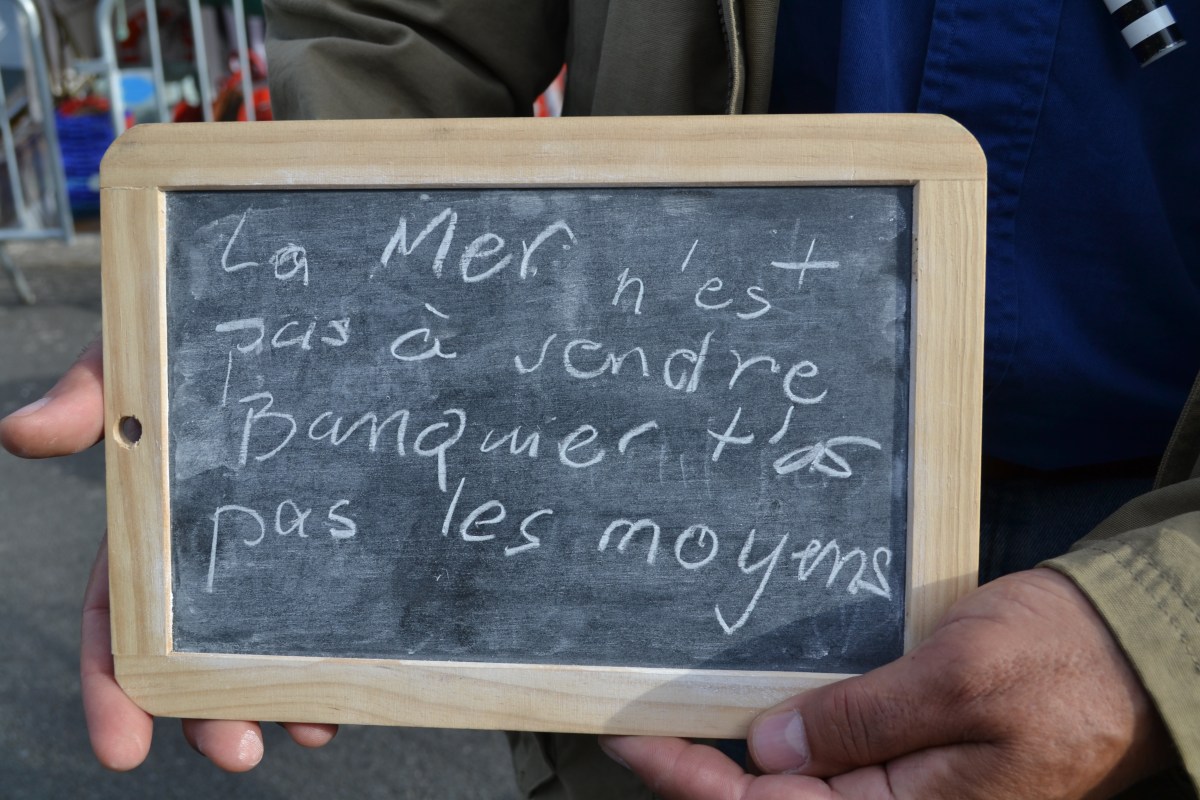 La Mer n'est
pas à vendre
Banquier t'as
pas les moyens